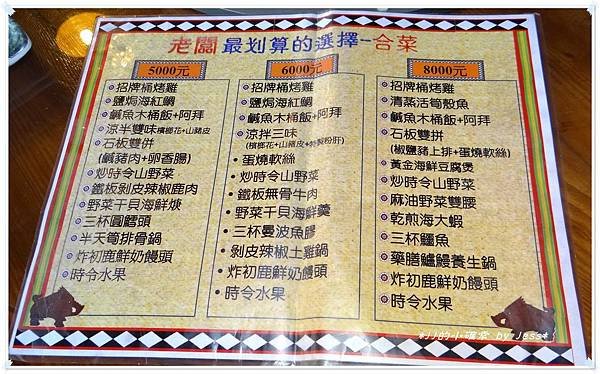 老闆最划算的選擇-合菜
5000元
招牌桶烤雞
鹽焗海紅鯛
鹹魚木桶飯+阿拜
涼半雙味(檳榔花+山豬皮)
石板雙併
(鹹豬肉+卵香腸)
炒時令山野菜
鐵板剝皮辣椒鹿肉
野菜干貝海鮮焿
三杯圓鱈頭
半天筍排骨鍋
炸初鹿鮮奶饅頭
時令水果
6000元
招牌桶烤雞
鹽焗海紅鯛
鹹魚木桶飯+阿拜
涼拌三味
(檳榔花+山豬皮+特製粉肝)
蛋燒軟絲
炒時令山野菜
鐵板無骨牛肉
野菜干貝海鮮羹
三杯曼波魚膠
剝皮辣椒土雞鍋
炸初鹿鮮奶饅頭
時令水果
8000元
招牌桶烤雞
清蒸活筍殼魚
鹹魚木桶飯+阿拜
石板雙拼
(椒鹽豬上排+蛋燒軟絲)
黃金海鮮豆腐煲
炒時令山野菜
麻油野菜雙腰
乾煎海大蝦
三杯鱷魚
藥膳鱸鰻養生鍋
炸初鹿鮮奶饅頭
時令水果